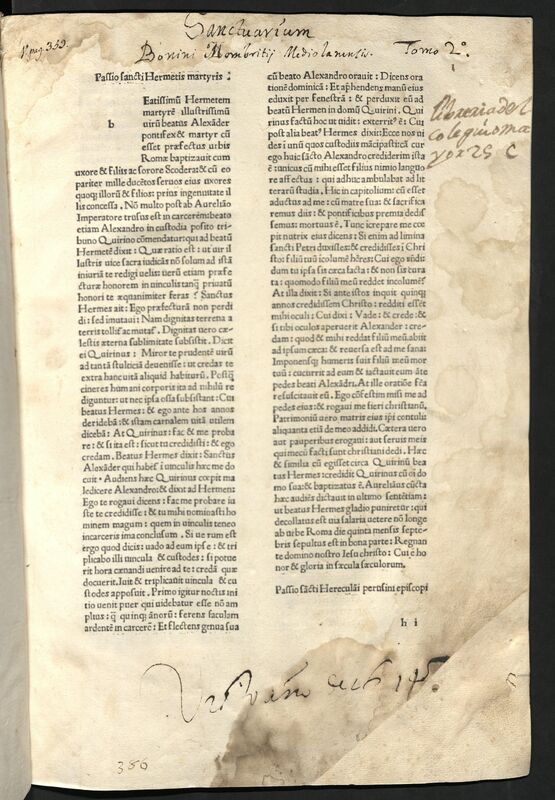 Sanctuarium
Bonini Mombritij Mediolanensis. Tomo 2º
Passio sancti Hermetis martyris :
b
Eatissimū Hermetem
martyrē illustrissimū
uirū beatus Alexāder
pontifex & martyr cū
esset præfectus urbis
Romæ baptizauit cum
uxore & filiis ac sorore & cū eo
pariter mille ducētos seruos eius uxores
quoq; illorū & filios: prius ingenuitate il
lis concessa. Nō multo post ab Aurelio
Imperatore trusus est in carcerem: beato
etiam Alexandro in custodia posito tri-
buno Quirino comendatur: qui ad beatū
Hermetē dixit: Quæ ratio est: ut uir il
lustris uice sacra iudicās nō solum ad istā
iniuriā te redigi uelis: uerū etiam præfe
cturæ honorem in uinculis tanq̄ priuatū
honori te æquanimiter feras? Sanctus
Hermes ait: Ego præfecturā non perdi
di: sed imutaui: Nam dignitas terrena a
terris tollit̄ ac mutat̄. Dignitas uero cæ
lestis æterna sublimitate subsistit. Dicit
ei Quirinus: Miror te prudentē uirū
ad tantā stulticiā deuenisse: ut credas te
extra hanc uitā aliquid habiturū. Postq̄
cineres humani corporis ita ad nihilū re
diguntur: ut nec ipsa ossa subsistant: Cui
beatus Hermes: & ego ante hos annos
deridebā: & istam carnalem uitā utilem
dicebā: At Quirinus: fac & me proba
re: & si ita est: sicut tu credidisti: & ego
credam. Beatus Hermes dixit: Sanctus
Alexāder quē habes ī uinculis hæc me do
cuit. Audiens hæc Quirinus cœpit ma
ledicere Alexandro: & dixit ad Hermen:
Ego te rogaui dicens: fac me probare iu
ste te credidisse: & tu mihi nominasti ho
minem magum: quem in uinculis teneo
incarceris ima conclusum. Si ue rum est
ergo quod dicis: uado ad eum ipse: & tri
plicabo illi uincula & custodes: si potue
rit hora cœnandi uenire ad te: credā quæ
docuerit. Iuit & triplicauit uincula & cu
stodes apposuit. Primo igitur noctis ini
tio uenit puer qui uidebatur esse nō am
plius: q̄ quinq; ānorū: ferens faculam
ardentē in carcerē: Et flectens genua sua
cū beato Alexandro orauit: Dicens ora
tionē dominicā: Et apphendens manū eius
eduxit per fenestrā: & perduxit eū ad
beatū Hermen in domū Quirini. Qui
rinus factū hoc ut uidit: exterrit⁹ ē: Cū
post alia beat⁹ Hermes dixit: Ecce nos ui
des ī unū quos custodiis mācipasti: & cur
ego huic sācto Alexandro crediderim ista
ē: unicus cū mihi esset filius nimio languo
re affectus: qui adhuc ambulabat ad lit
terarū studia. Hic in capitolium cū esset
aductus ad me: cū matre sua: & sacrifica
remus diis: & pontificibus premia dedis
semus: mortuus ē. Tunc īcrepare me cœ
pit nutrix eius dicens: Si enim ad limina
sancti Petri duxisses: & credidisses: Chri
sto: filiū tuū īcolumē hēres: Cui ego
dum tu ipsa sis cæca facta: & non sis tura
ta: quomodo filiū meū reddet īcolumē?
At illa dixit: Si ante istos inquit quinq;
annos credidissem Christo: redditi essēt
mihi oculi: Cui dixi: Vade: & crede: &
si tibi oculos aperuerit Alexander: cre-
dam: quod & mihi reddat filiū meū: abiit
ad ipsum cæca: & reuersa est ad me sana:
Imponensq; humeris suis filiū meū mor
tuū: cucurrit ad eum & iactauit eum āte
pedes beati Alexādri. At ille oratiōe fca
resuscitauit eū. Ego cōfestim misi me ad
pedes eius: & rogaui me fieri christianū,
Patrimoniū uero matris eius ipi contuli
aliquanta etiā de meo addidi. Cætera uero
aut pauperibus erogaui: aut seruis meis
qui mecū facti sunt christiani dedi. Hæc
& similia cū egisset circa Quirinū bea
tus Hermes: credidit Quirinus cū oi do
mo sua: & baptizatus ē. Aurelianus cūcta
hæc audiēs dictauit in ultimo sententiam:
ut beatus Hermes gladio puniretur: qui
decollatus est uia salaria uetere nō longe
ab urbe Roma die quinta mensis septe-
bris sepultus est in bona parte: Regnan
te domino nostro Iesu christo: Cui ē ho
nor & gloria in sæcula sæculorum.
Passio sācti Hereculāi perusini episcopi
h i
libreria del
colegio ma
yor 25 C
386